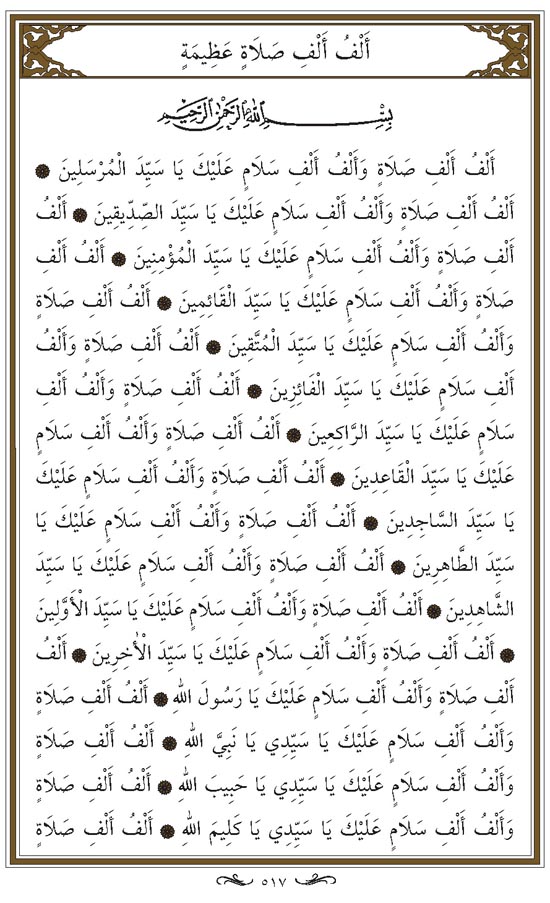 أَلْفُ أَلْفِ صَلَاةٍ عَظِيمَةٍ
بِسْمِ اللهِ الرَّحْمٰنِ الرَّحِيمِ
أَلْفُ أَلْفِ صَلَاةٍ وَأَلْفُ أَلْفِ سَلَامٍ عَلَيْكَ يَا سَيِّدَ الْمُرْسَلِينَ ۞
أَلْفُ أَلْفِ صَلَاةٍ وَأَلْفُ أَلْفِ سَلَامٍ عَلَيْكَ يَا سَيِّدَ الصِّدِّيقِينَ ۞ أَلْفُ
أَلْفِ صَلَاةٍ وَأَلْفُ أَلْفِ سَلَامٍ عَلَيْكَ يَا سَيِّدَ الْمُؤْمِنِينَ ۞ أَلْفُ أَلْفِ
صَلَاةٍ وَأَلْفُ أَلْفِ سَلَامٍ عَلَيْكَ يَا سَيِّدَ الْقَائِمِينَ ۞ أَلْفُ أَلْفِ صَلَاةٍ
وَأَلْفُ أَلْفِ سَلَامٍ عَلَيْكَ يَا سَيِّدَ الْمُتَّقِينَ ۞ أَلْفُ أَلْفِ صَلَاةٍ وَأَلْفُ
أَلْفِ سَلَامٍ عَلَيْكَ يَا سَيِّدَ الْفَائِزِينَ ۞ أَلْفُ أَلْفِ صَلَاةٍ وَأَلْفُ أَلْفِ
سَلَامٍ عَلَيْكَ يَا سَيِّدَ الرَّاكِعِينَ ۞ أَلْفُ أَلْفِ صَلَاةٍ وَأَلْفُ أَلْفِ سَلَامٍ
عَلَيْكَ يَا سَيِّدَ الْقَاعِدِينَ ۞ أَلْفُ أَلْفِ صَلَاةٍ وَأَلْفُ أَلْفِ سَلَامٍ عَلَيْكَ
يَا سَيِّدَ السَّاجِدِينَ ۞ أَلْفُ أَلْفِ صَلَاةٍ وَأَلْفُ أَلْفِ سَلَامٍ عَلَيْكَ يَا
سَيِّدَ الطَّاهِرِينَ ۞ أَلْفُ أَلْفِ صَلَاةٍ وَأَلْفُ أَلْفِ سَلَامٍ عَلَيْكَ يَا سَيِّدَ
الشَّاهِدِينَ ۞ أَلْفُ أَلْفِ صَلَاةٍ وَأَلْفُ أَلْفِ سَلَامٍ عَلَيْكَ يَا سَيِّدَ الْأَوَّلِينَ
۞ أَلْفُ أَلْفِ صَلَاةٍ وَأَلْفُ أَلْفِ سَلَامٍ عَلَيْكَ يَا سَيِّدَ الْأٰخِرِينَ ۞ أَلْفُ
أَلْفِ صَلَاةٍ وَأَلْفُ أَلْفِ سَلَامٍ عَلَيْكَ يَا رَسُولَ اللهِ ۞ أَلْفُ أَلْفِ صَلَاةٍ
وَأَلْفُ أَلْفِ سَلَامٍ عَلَيْكَ يَا سَيِّدِي يَا نَبِيَّ اللهِ ۞ أَلْفُ أَلْفِ صَلَاةٍ
وَأَلْفُ أَلْفِ سَلَامٍ عَلَيْكَ يَا سَيِّدِي يَا حَبِيبَ اللهِ ۞ أَلْفُ أَلْفِ صَلَاةٍ
وَأَلْفُ أَلْفِ سَلَامٍ عَلَيْكَ يَا سَيِّدِي يَا كَلِيمَ اللهِ ۞ أَلْفُ أَلْفِ صَلَاةٍ
٥١٧